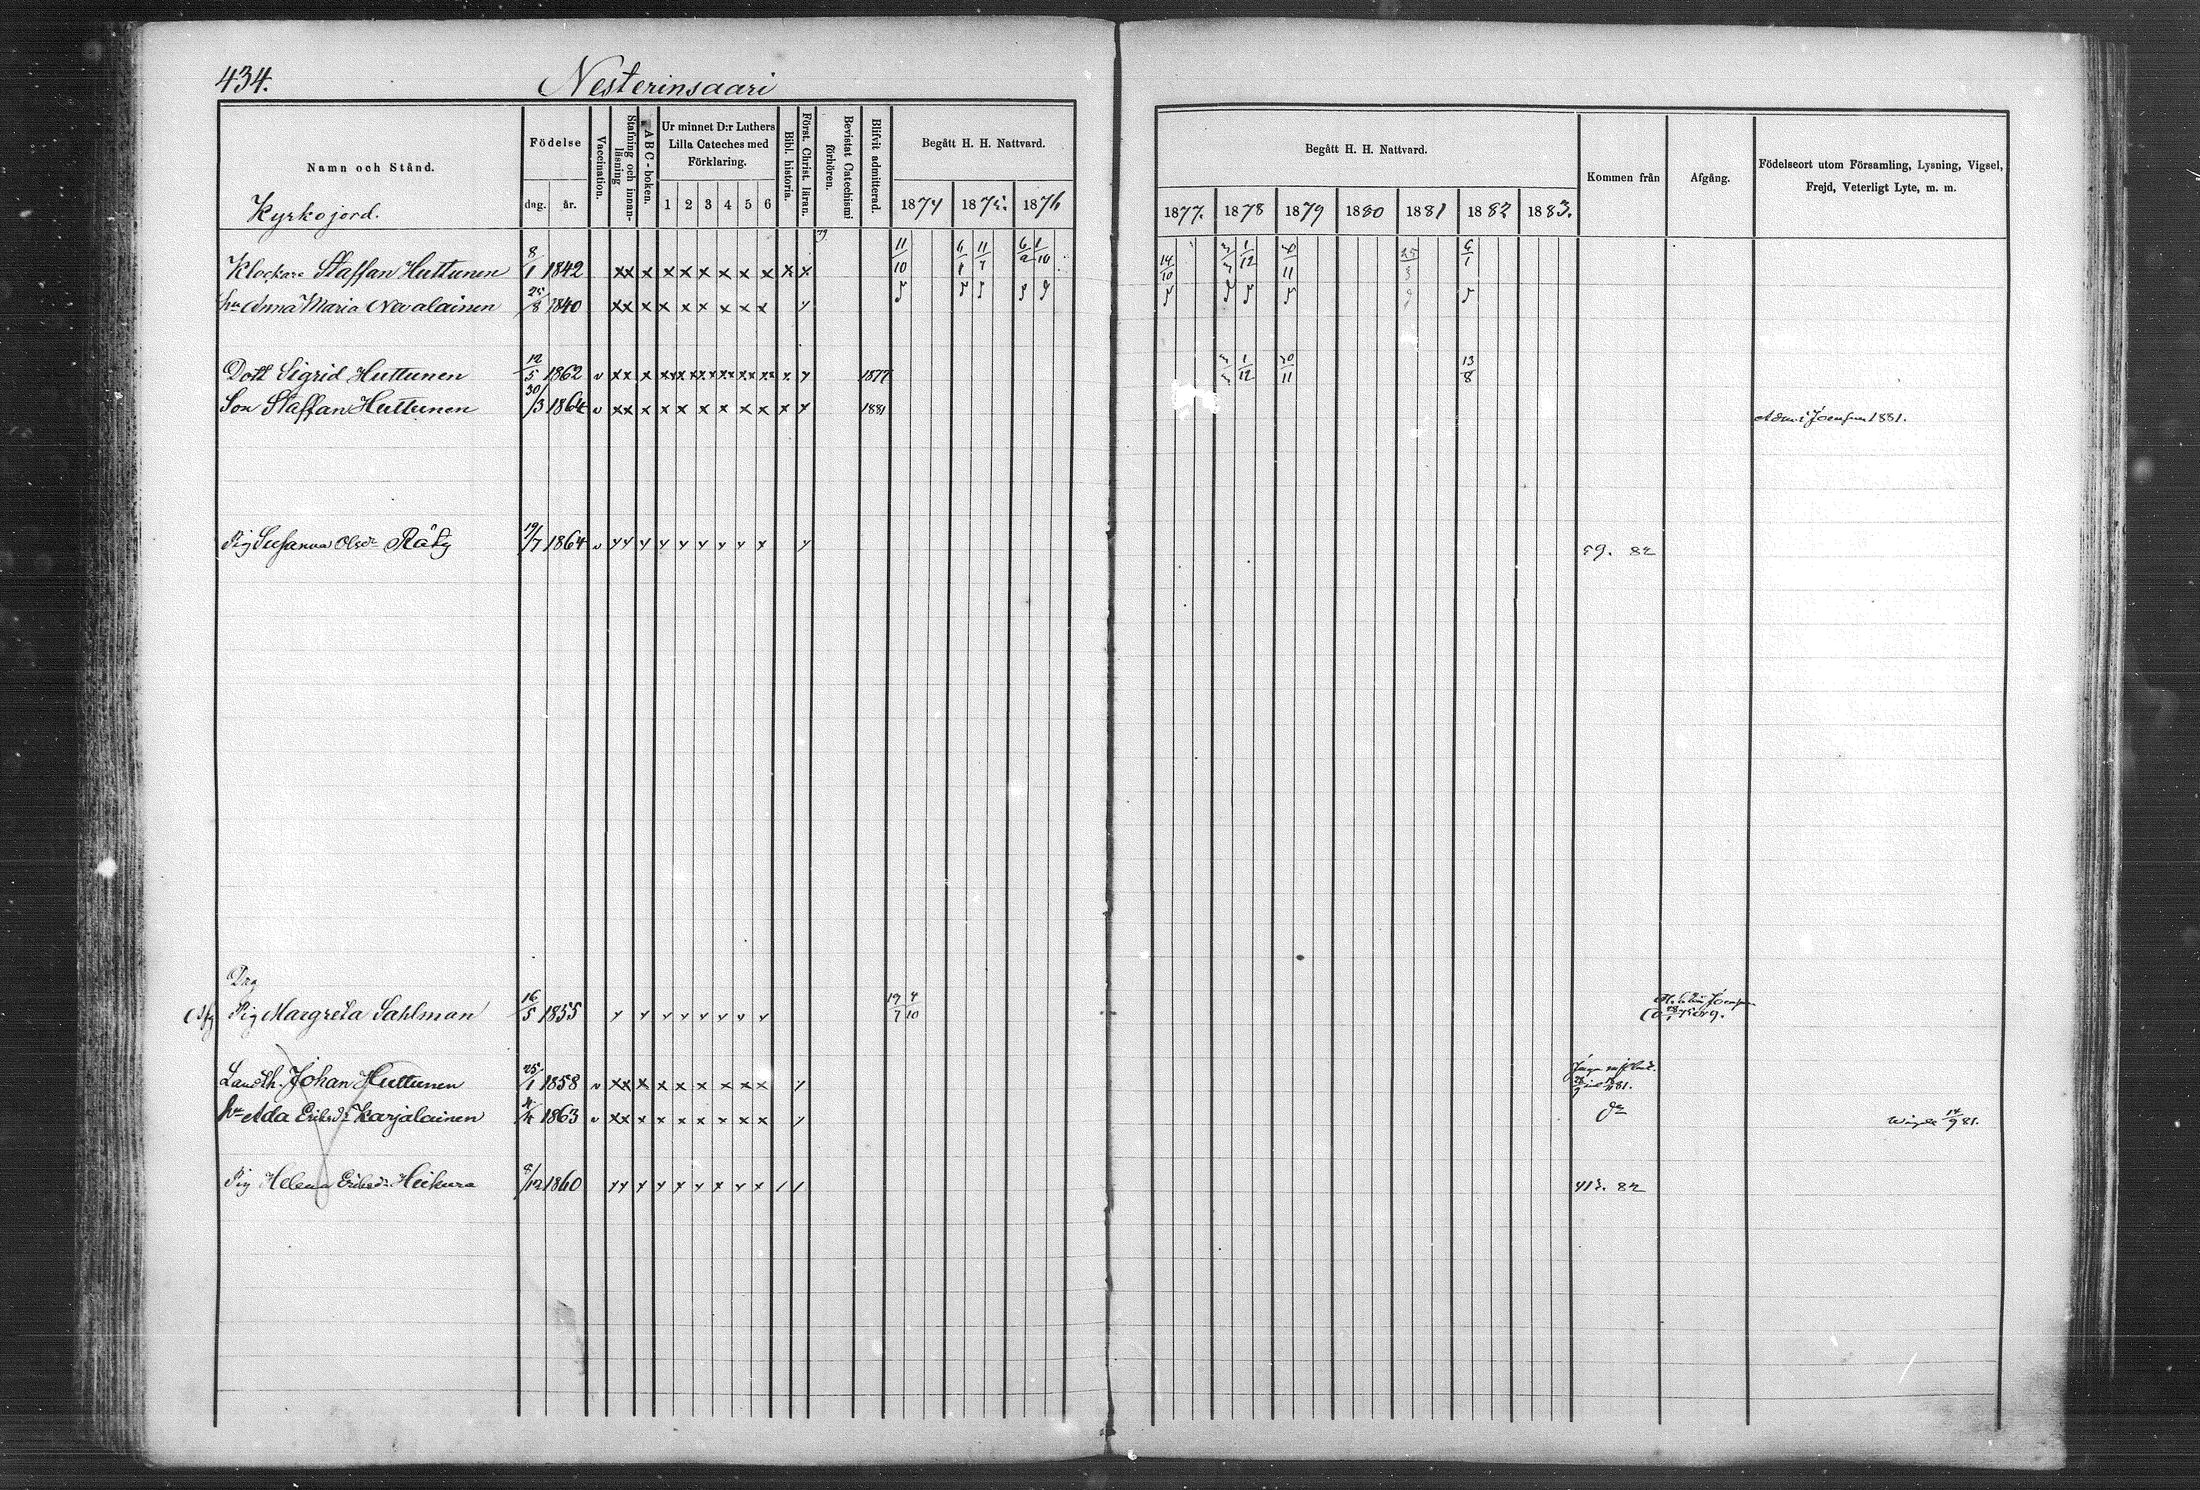 434.
Nesterinsaari
Namn och Stånd.
Födelse
dag.
år.
Vaccination.
Stafning och innan-
läsning
ABC-boken.
Ur minnet D:r Luthers
Lilla Cateches med
Förklaring.
1 2 3 4 5 6
Bibl. historia.
Först. Christ. läran.
Bevistat Catechismi
förhören.
Blifvit admitterad.
Begått H. H. Nattvard.
1874 1875. 1876
Begått H. H. Nattvard.
1877. 1878 1879 1880 1881 1882 1883.
Kommen från
Afgång.
Födelseort utom Församling, Lysning, Vigsel,
Frejd, Veterligt Lyte, m. m.
Kyrkojord.
Klockare Staffan Huttunen 8/1 1842 xx x x x x x x x x x 11/10 6/1 11/7 6/2 1/10 14/10 1/12 11 25/3 6/1
hu Anna Maria Nevalainen 25/8 1840 xx x x x x x x x
Dott Sigrid Huttunen 12/5 1862 v xx x 1877 1/12 20/11 13/8
Son Staffan Huttunen 30/3 1864 v xx x x x x x x x x x 1881 1881.
Pig Susanna Olsdr Räty 19/7 1864 v 59. 82
Dag
Pig Margreta Sahlman 16/5 1855 19/7 4/10
Landth. Johan Huttunen 25/1 1858 v xx x x x x x x x 81.
hu Ada Eriksdr Karjalainen 1863 v xx x x x x x x x do Wigde 14/9 81.
Pig Helena Eriksdr Heikura 9/12 1860 413. 82